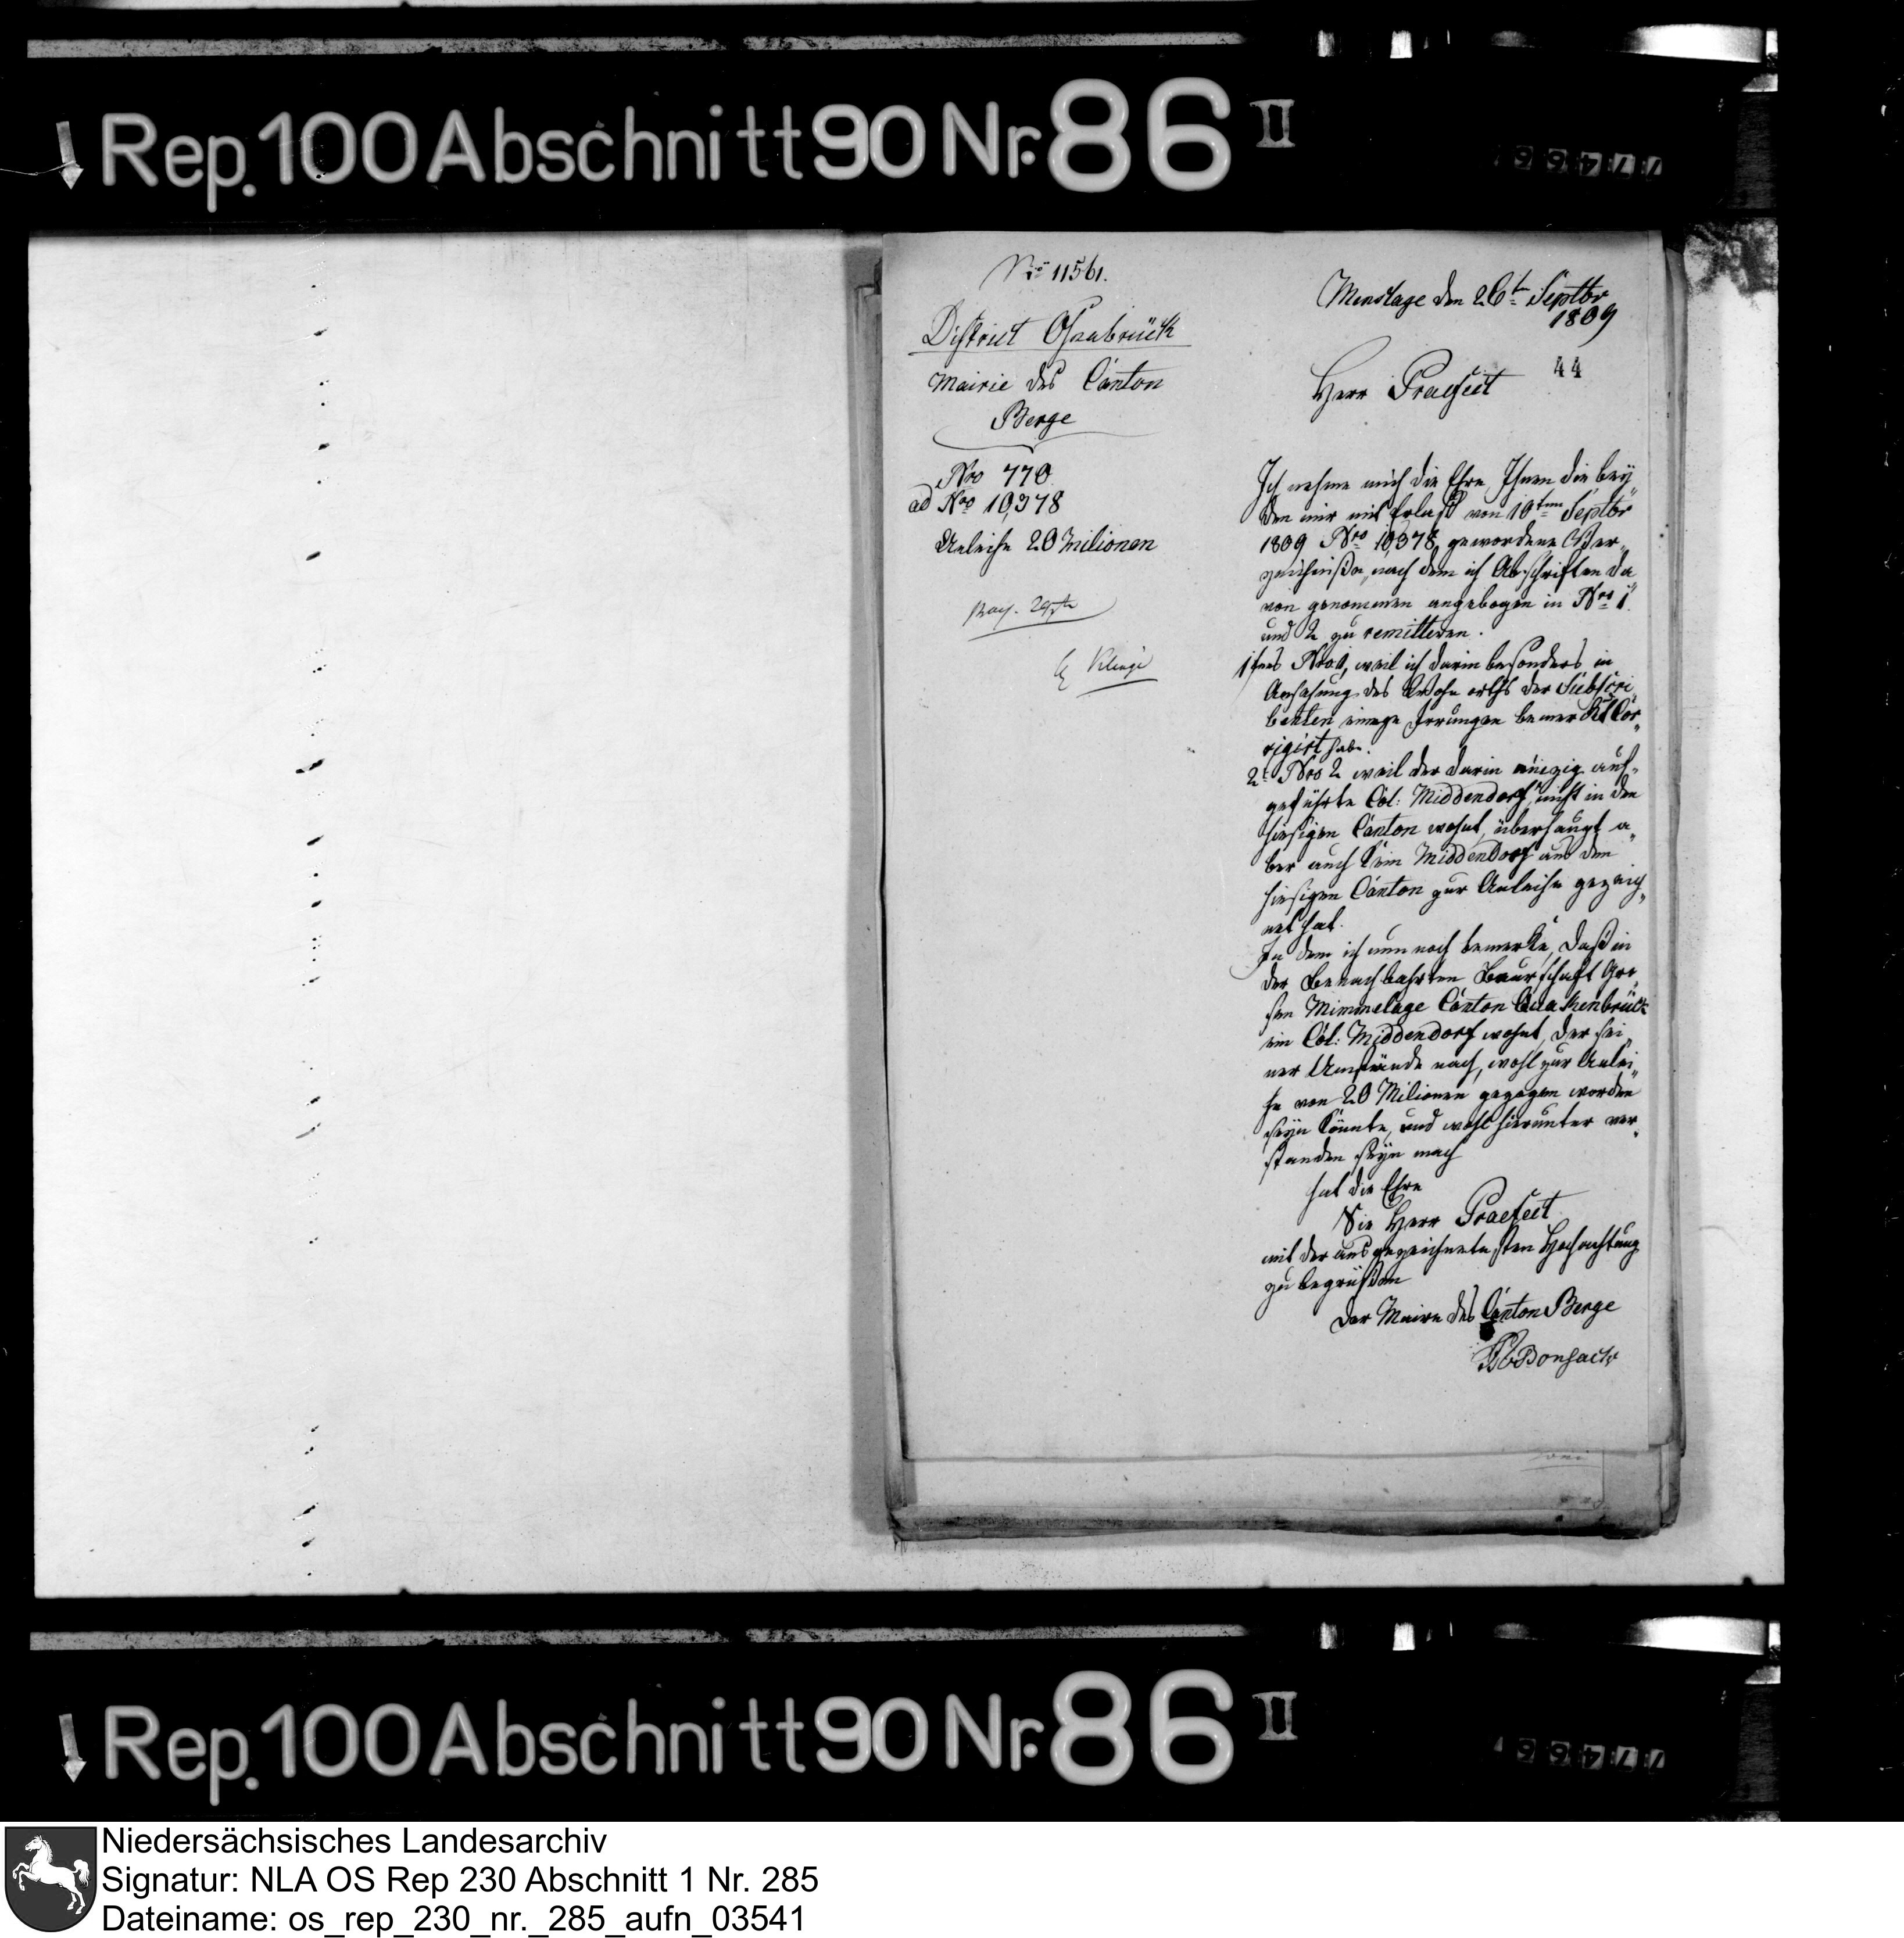 Rep. 100 Abschnitt 90 Nr. 86 II
No 11561.
District Osnabrück
Mairie des Canton
Berge
Nro 770
ad Nro 10,378
Anleihe 20 Milionen
Menslage den 26t Septbr
1809
44
Herr Praefect
Ich nehme mich die Ehre Ihnen die bey
den mir mit Erlaß von 10ten Septbr
1809 Nro 10,378 gewordene Ver„
zeichniße, nach dem ich Abschriften da„
von genommen angebogen in Nro 1.
und 2 zu remitteren.
1stens Nro 1, weil ich darin besonders in
Ansehung des Wohn orths der Subscri„
benten einige Irrungen bemerkt Cor„
rigirt habe.
2t Nro 2 weil der darin einzig auf„
geführte Col: Middendorf, nicht in den
hiesigen Canton wohnt, überhaupt a„
ber auch kein Middendorf aus dem
hiesigen Canton zur Anleihe gezeich„
net hat.
In dem ich nun noch bemerke, daß in
der benachbahrten Baurschaft Gro„
sen Mimmelage Canton Quakenbrück
ein Col: Middendorf wohnt, der sei„
ner Umstände nach, wohl zur Anlei„
he von 20 Milionen gezogen worden
seyn könnte, und wohl hierunter ver„
standen seyn mach
hat die Ehre
Sie Herr Praefect
mit der ausgezeichnetesten Hochachtung
zu begrüßen
Der Maire des Canton Berge
Bonsack
Rep. 100 Abschnitt 90 Nr. 86 II
Niedersächsisches Landesarchiv
Signatur: NLA OS Rep 230 Abschnitt 1 Nr. 285
Dateiname: os_rep_230_nr._285_aufn_03541